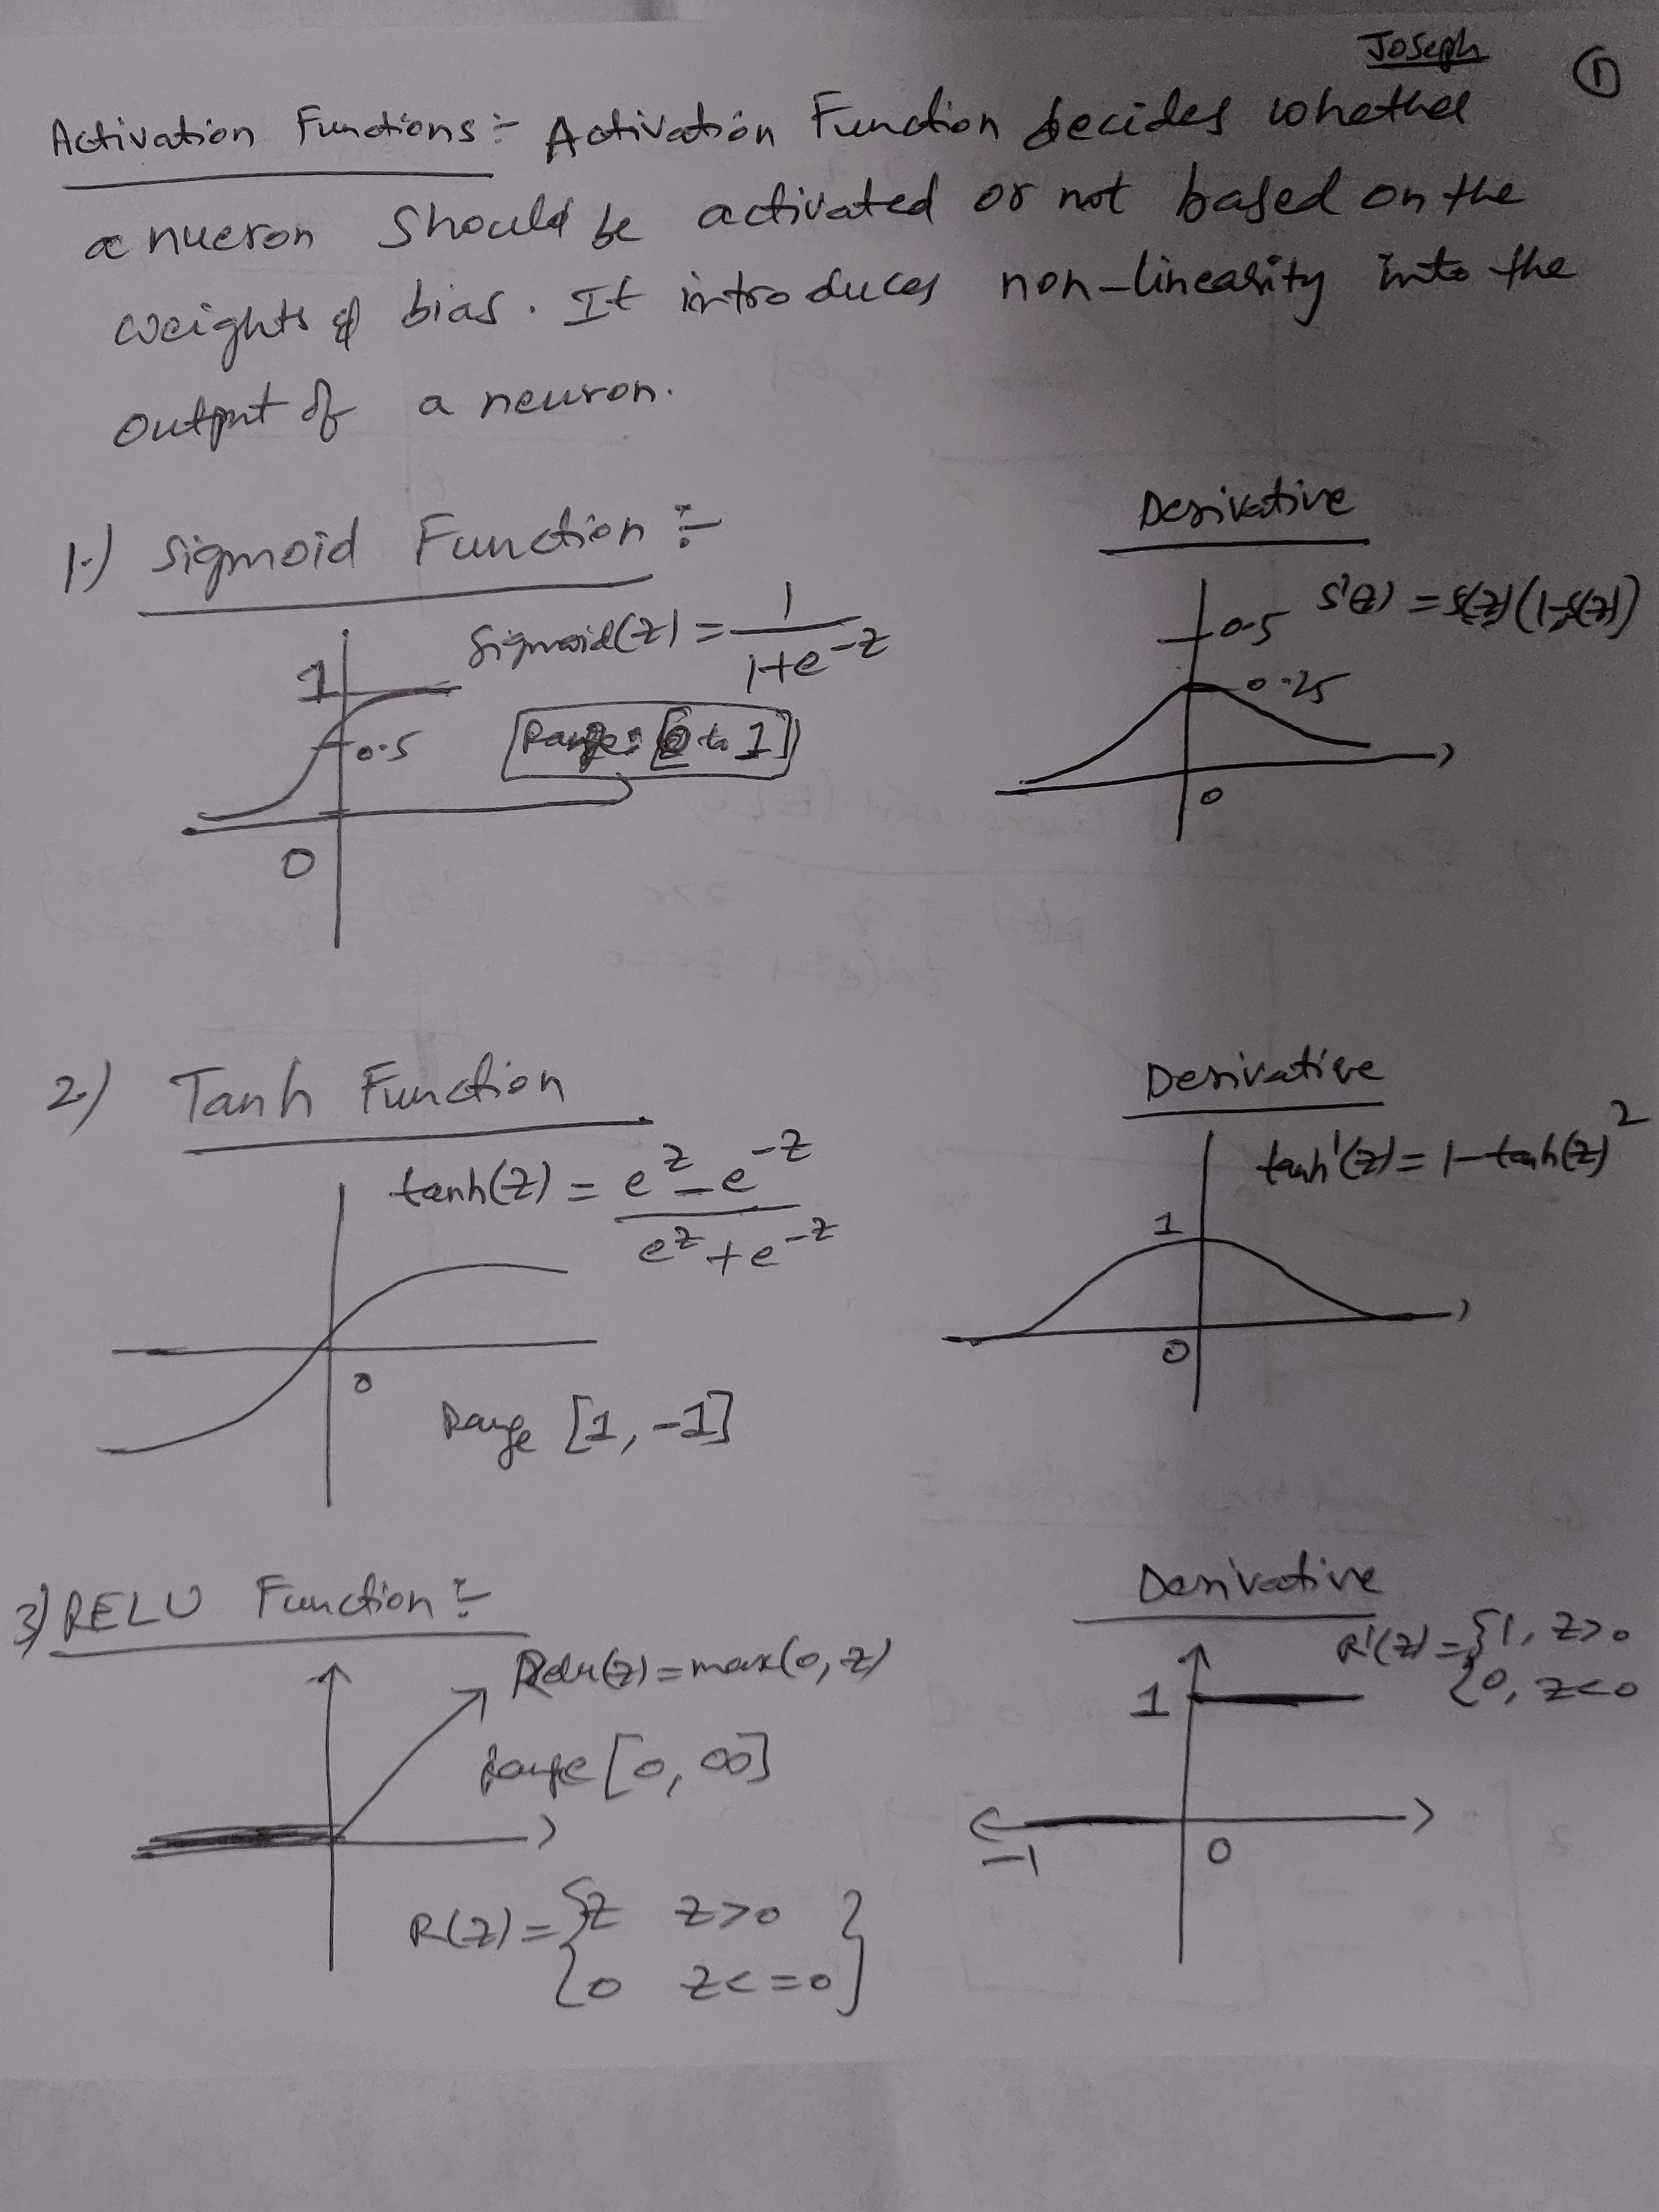 Joseph
①
Activation Functions :- Activation Function decides whether
a nueron should be activated or not based on the
weights & bias. It introduces non-linearity into the
output of a neuron.
1.) Sigmoid Function :-
Sigmoid(z) = 1 / 1+e^-z
1
0.5
Range: [0 to 1]
0
Derivative
0.5
S'(z) = S(z)(1-S(z))
0.25
0
2.) Tanh Function
tanh(z) = e^z - e^-z / e^z + e^-z
0
Range [1, -1]
Derivative
tanh'(z) = 1-tanh(z)^2
1
0
3) RELU Function :-
Relu(z) = max(0, z)
Range [0, ∞]
R(z) = { z z>0 }
{ 0 z<=0 }
Derivative
R'(z) = { 1, z>0
{ 0, z<0
1
-1
0